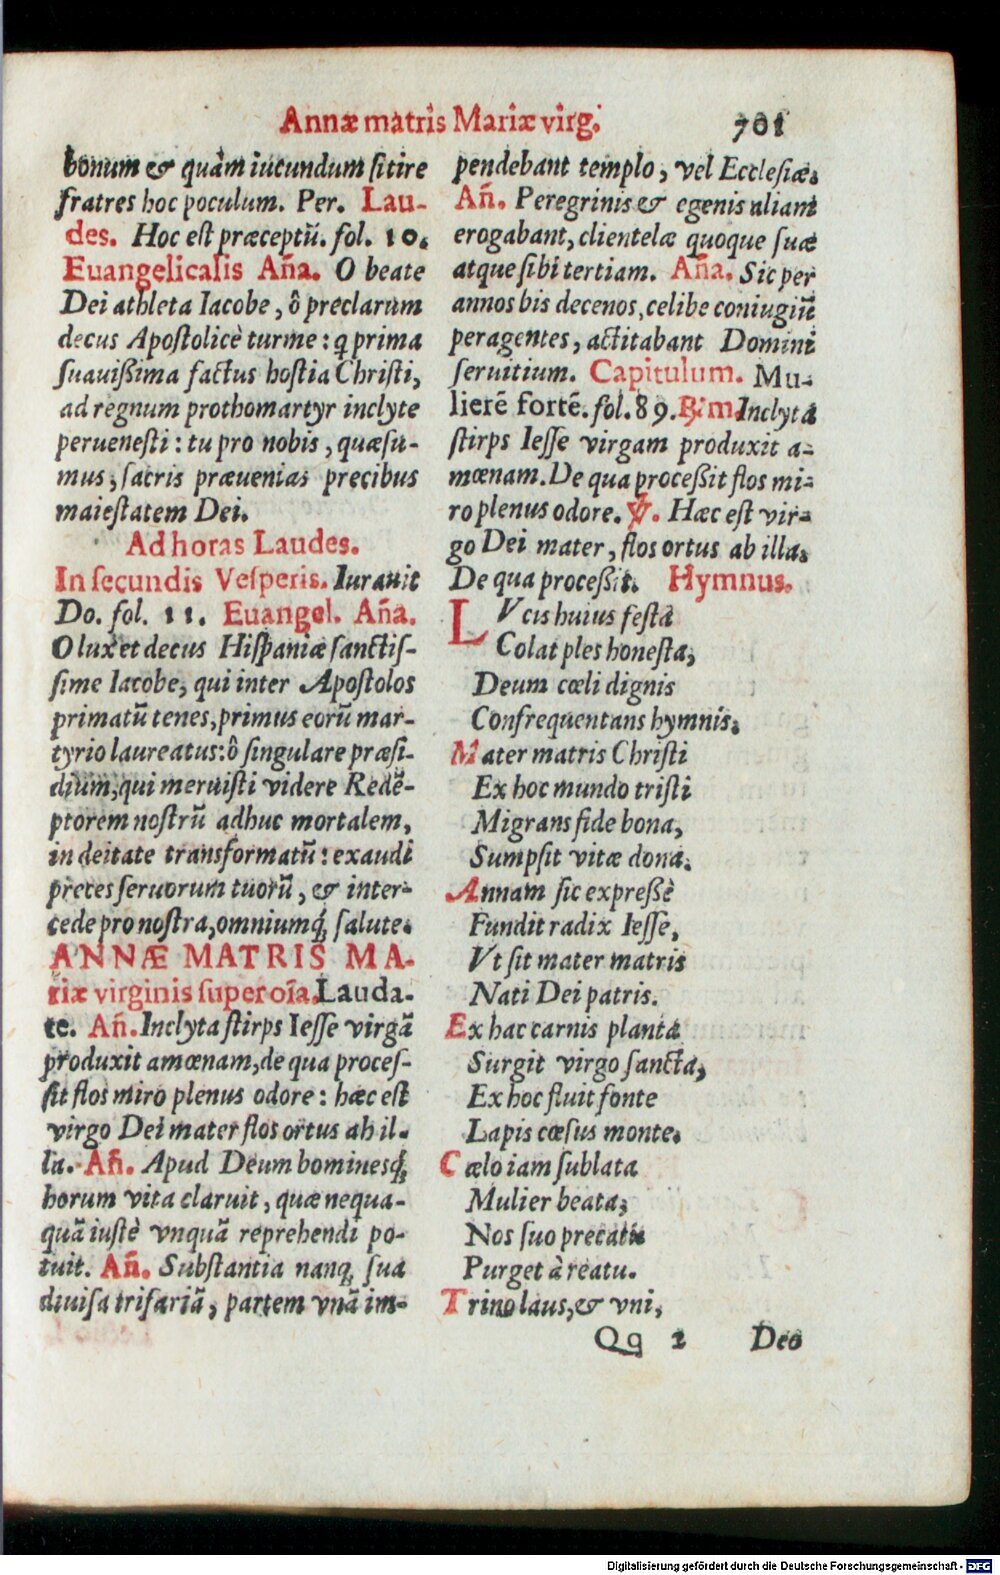 Annæ matris Mariæ virg. 701
bonum & quàm iucundum sitire
fratres hoc poculum. Per. Lau-
des. Hoc est præceptū. fol. 10.
Euangelicalis Aña. O beate
Dei athleta Iacobe, ô preclarum
decus Apostolicè turme: q prima
suauißima factus hostia Christi,
ad regnum prothomartyr inclyte
peruenesti: tu pro nobis, quæsu-
mus, sacris præuenias precibus
maiestatem Dei.
Ad horas Laudes.
In secundis Vesperis. Iurauit
Do. fol. 11. Euangel. Aña.
O lux et decus Hispaniæ sanctis-
sime Iacobe, qui inter Apostolos
primatū tenes, primus eorū mar-
tyrio laureatus: ô singulare præsi-
dium, qui meruisti videre Redē-
ptorem nostrū adhuc mortalem,
in deitate transformatū: exaudi
preces seruorum tuorū, & inter-
cede pro nostra, omniumq́; salute.
ANNÆ MATRIS MA-
riæ virginis super oīa. Lauda-
te. Añ. Inclyta stirps Iesse virgā
produxit amœnam, de qua proces-
sit flos miro plenus odore: hæc est
virgo Dei mater flos ortus ab il-
la. Añ. Apud Deum hominesq́;
horum vita claruit, quæ nequa-
quā iustè vnquā reprehendi po-
tuit. Añ. Substantia nanq; sua
diuisa trifariā, partem vnā im-
pendebant templo, vel Ecclesiæ.
Añ. Peregrinis & egenis aliam
erogabant, clientelæ quoque suæ
atque sibi tertiam. Aña. Sic per
annos bis decenos, celibe coniugiū
peragentes, actitabant Domini
seruitium. Capitulum. Mu-
lierē fortē. fol. 89. ℟. m. Inclyta
stirps Iesse virgam produxit a-
mœnam. De qua proceßit flos mi-
ro plenus odore. ℣. Hæc est vir-
go Dei mater, flos ortus ab illa.
De qua proceßit. Hymnus.
LVcis huius festa
Colat ples honesta,
Deum cœli dignis
Confrequentans hymnis.
Mater matris Christi
Ex hoc mundo tristi
Migrans fide bona,
Sumpsit vitæ dona.
Annam sic expreßè
Fundit radix Iesse,
Vt sit mater matris
Nati Dei patris.
Ex hac carnis planta
Surgit virgo sancta,
Ex hoc fluit fonte
Lapis cæsus monte.
Cælo iam sublata
Mulier beata,
Nos suo precatu
Purget à reatu.
Trino laus, & vni,
Qq 2 Deo
Digitalisierung gefördert durch die Deutsche Forschungsgemeinschaft - DFG